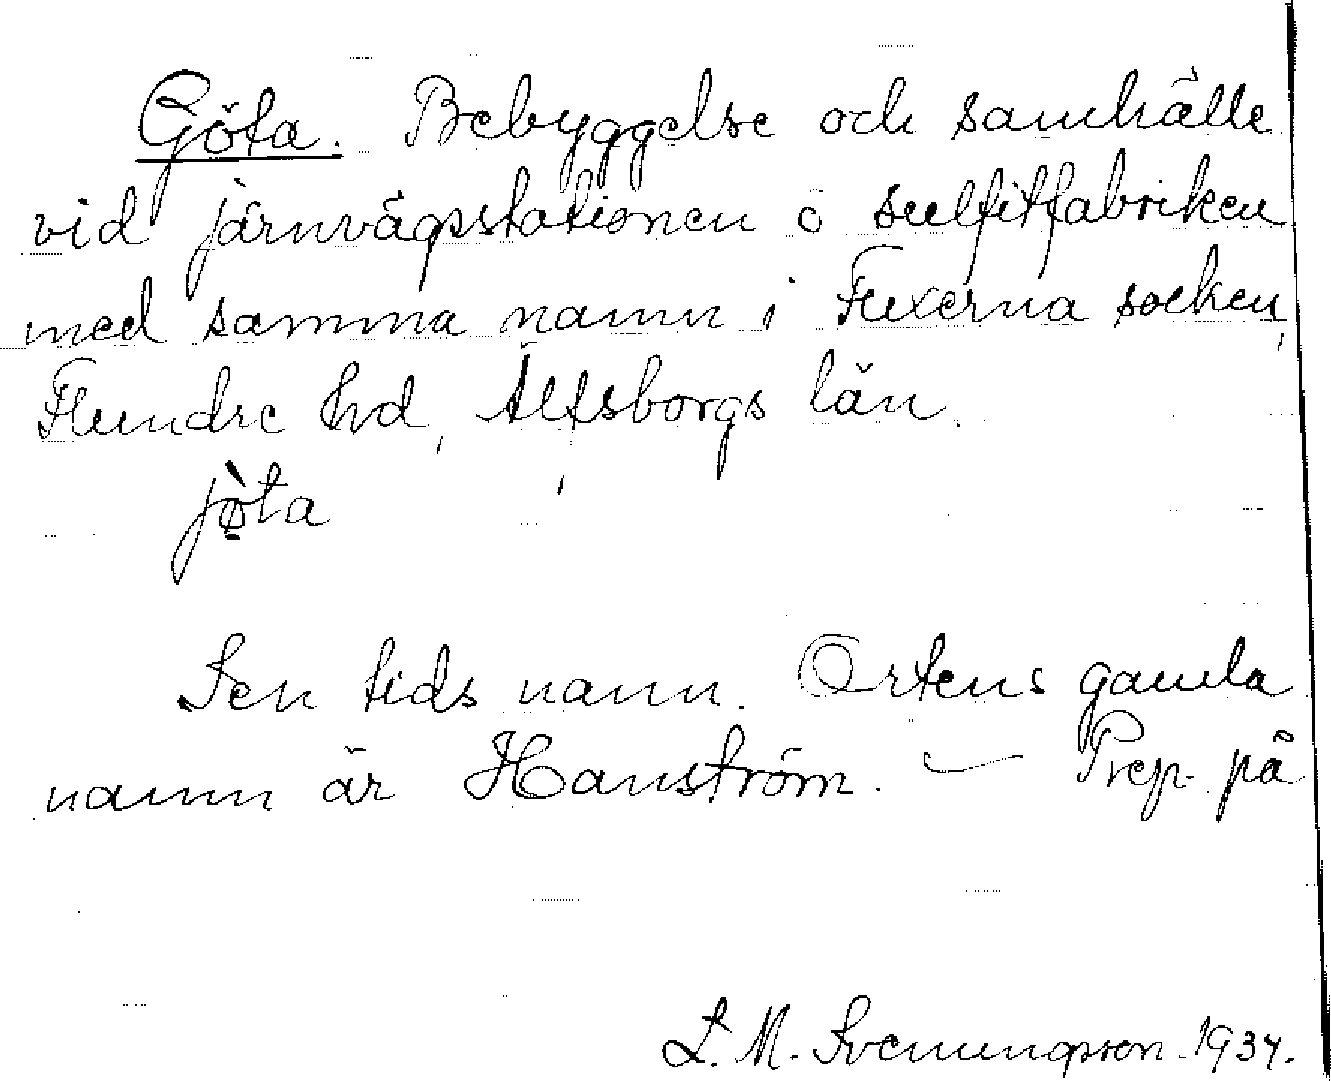 Göta. Bebyggelse och samhälle
vid järnvägsstationen o sulfitfabriken
med samma namn i Fuxerna socken,
Flundre hd, Älfsborgs län.
jò̤ta
Sen tids namn. Ortens gamla
namn är Hanström. — Prep. på
L. M. Svenungsson. 1934.